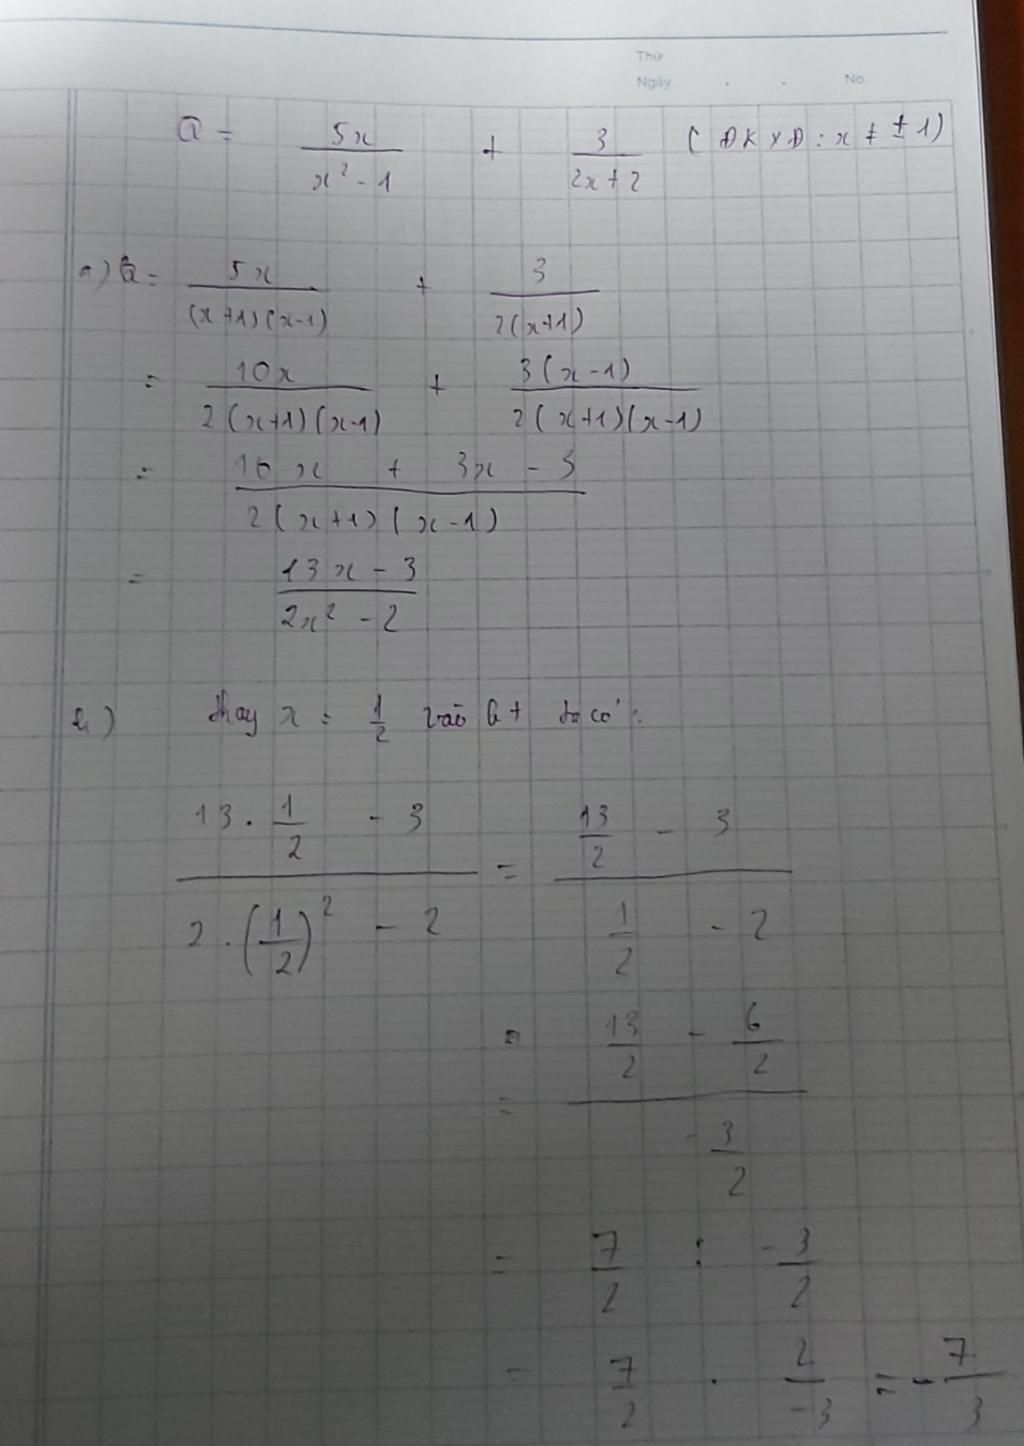 Thứ
Ngày . . No.
Q = 5x / x² - 1 + 3 / 2x + 2 ( ĐKXĐ : x ≠ ± 1)
a) Q = 5x / (x+1)(x-1) + 3 / 2(x+1)
= 10x / 2(x+1)(x-1) + 3(x-1) / 2(x+1)(x-1)
= 10x + 3x - 3 / 2(x+1)(x-1)
= 13x - 3 / 2x² - 2
b) thay x = 1/2 vào Q ta có :
13 . 1/2 - 3 / 2 . (1/2)² - 2 = 13/2 - 3 / 1/2 - 2
= 13/2 - 6/2 / -3/2
= 7/2 : -3/2
= 7/2 . 2/-3 = - 7/3